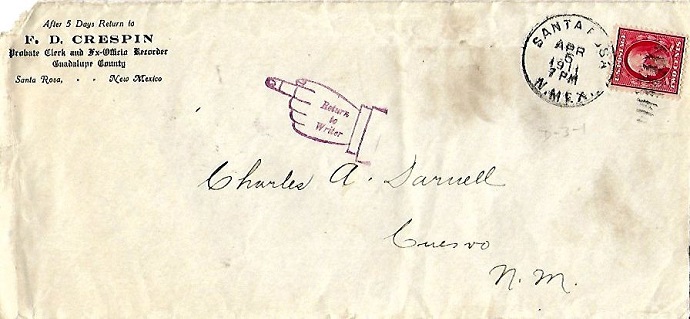 After 5 Days Return to
F. D. CRESPIN
Probate Clerk and Ex-Officio Recorder
Guadalupe County
Santa Rosa, . . New Mexico
SANTA ROSA
APR
5
1911
7 PM
N. MEX.
TWO CENTS
Return
to
Writer
7-3-1
Charles A. Darnell
Cuervo
N. M.